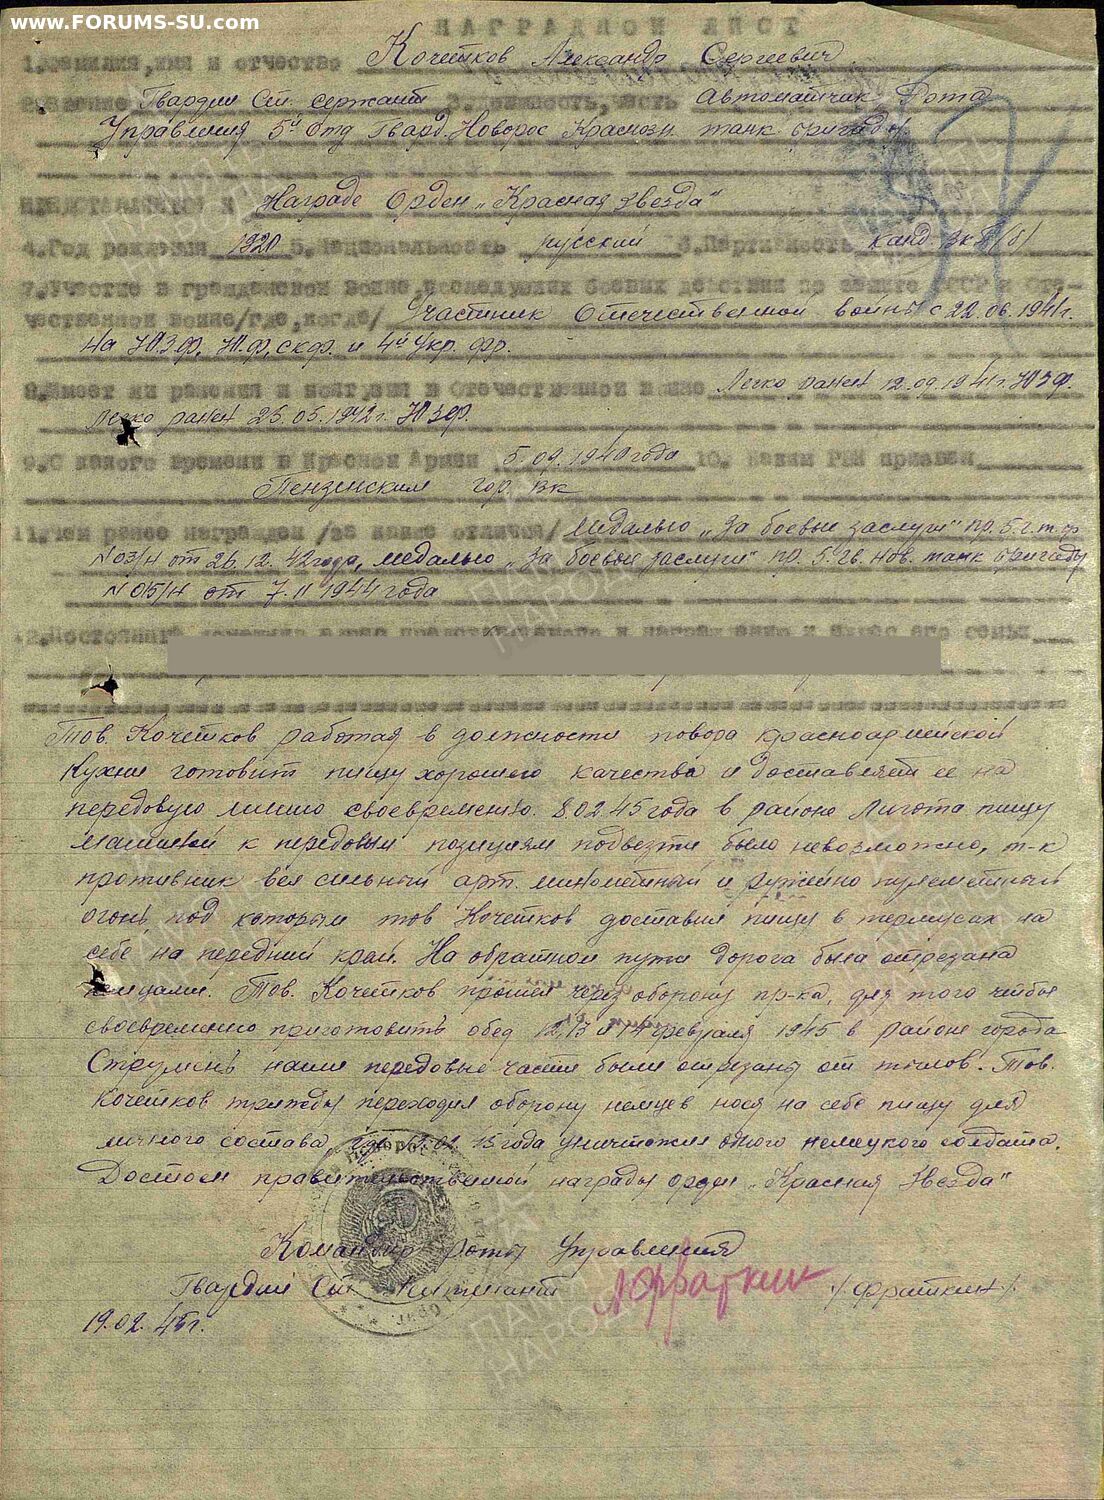 www.FORUMS-SU.com
НАГРАДНОЙ ЛИСТ
1. Фамилия, имя и отчество Кочетков Александр Сергеевич
2. Звание Гвардии Ст. сержант 3. Должность, часть Автоматчик, Рота
Управления 5й отд Гвард. Новорос Краснозн танк бригады
представляется к Награде Орден „Красная звезда"
4. Год рождения 1920 5. Национальность русский 6. Партийность канд. ВКП(б)
7. Участие в гражданской войне, последующих боевых действиях по защите СССР и Оте-
чественной войне/где, когда/ Участник Отечественной войны с 22.06.1941г.
на Ю.З.Ф, Ю.Ф, СКФ. и 4й Укр. фр.
8. Имеет ли ранения и контузии в Отечественной войне Легко ранен 12.09.1941г. ЮЗФ.
Легко ранен 25.05.1942г. ЮЗФ.
9. С какого времени в Красной Армии 5.09.1940 года 10. Каким РВК призван
Пензенским гор. вк
11. Чем ранее награжден /за какие отличия/ медалью „За боевые заслуги" пр. 5 г.т.бр
N 03/н от 26.12.42 года, медалью „За боевые заслуги" пр. 5. гв. нов. танк бригады
N 015/н от 7.11 1944 года
12. Постоянный домашний адрес представляемого к награждению и адрес его семьи
Тов. Кочетков работая в должности повора красноармейской
Кухни готовит пищу хорошего качества и доставляет ее на
передовую линию своевременно. 8.02.45 года в районе Лигота пищу
машиной к передовым позициям подвезти было невозможно, т-к
противник вел сильный арт. минометный и ружейно пулеметный
огонь, под которым тов Кочетков доставил пищу в термусах на
себе на передний край. На обратном пути дорога была отрезана
немцами. Тов. Кочетков прошел через оборону пр-ка, для того чтобы
своевременно приготовить обед 12, 13 и 14 февраля 1945 в районе города
Струмень наши передовые части были отрезаны от тылов. Тов.
Кочетков трижды переходил оборону немцев нося на себе пищу для
личного состава, 02 45 года уничтожил одного немецкого солдата.
Достоен правительственной награды орден „Красная Звезда"
Командир роты Управления
Гвардии Ст. Лейтенант /Фраткин/.
19.02.45г.
ПАМЯТЬ НАРОДА